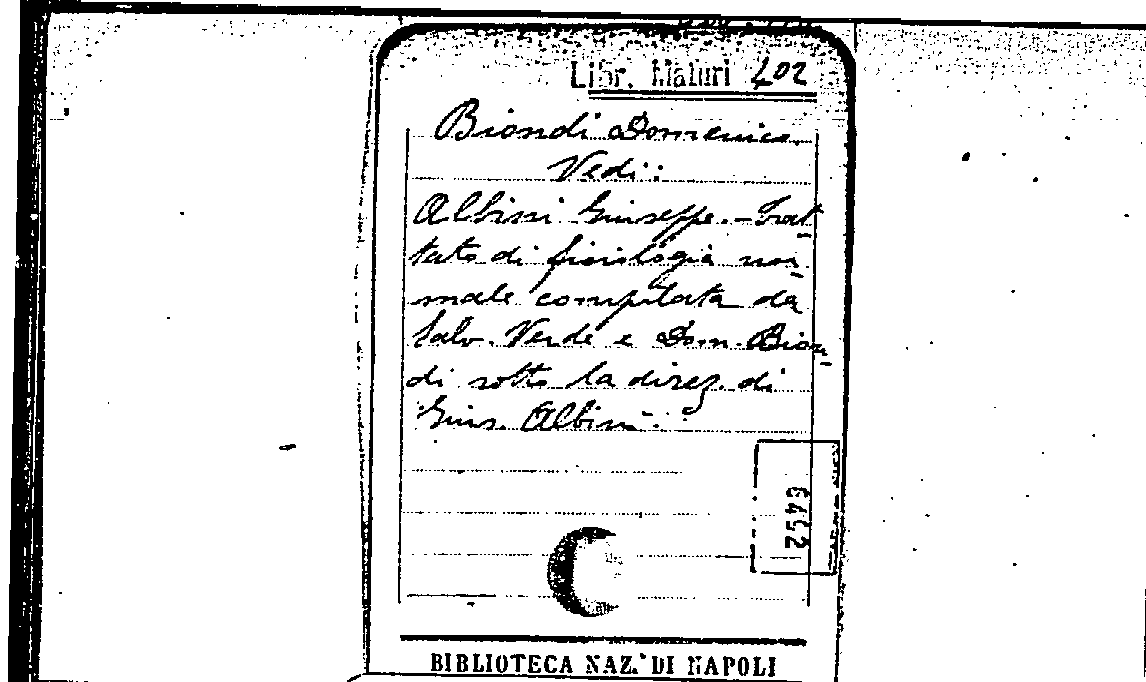 Libr. Maturi 402
Biondi Domenico
Vedi:
Albini Giuseppe. - Trat
tato di fisiologia nor-
male compilata da
Salv. Verde e Dom. Bion-
di sotto la direz. di
Gius. Albini.
6492
BIBLIOTECA NAZ. DI NAPOLI